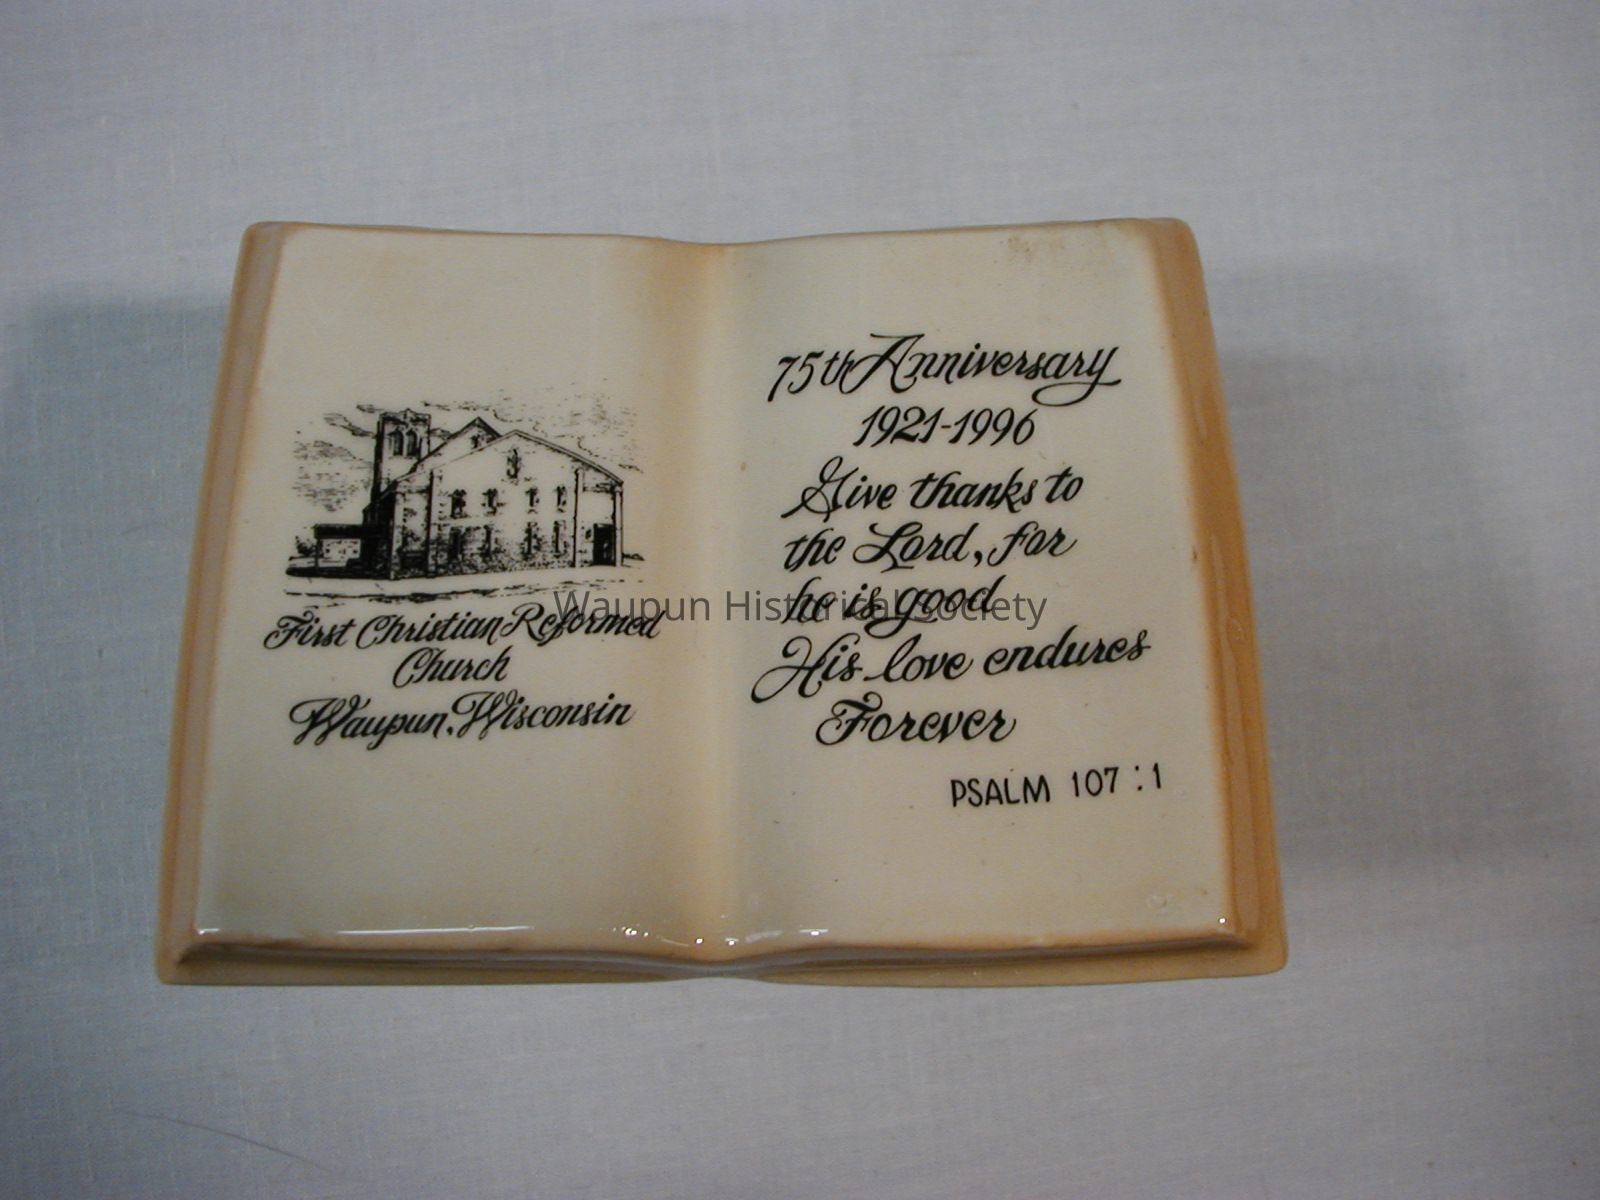 First Christian Reformed
Church
Waupun, Wisconsin
75th Anniversary
1921-1996
Give thanks to
the Lord, for
he is good
His love endures
Forever
PSALM 107:1
Waupun Historical Society